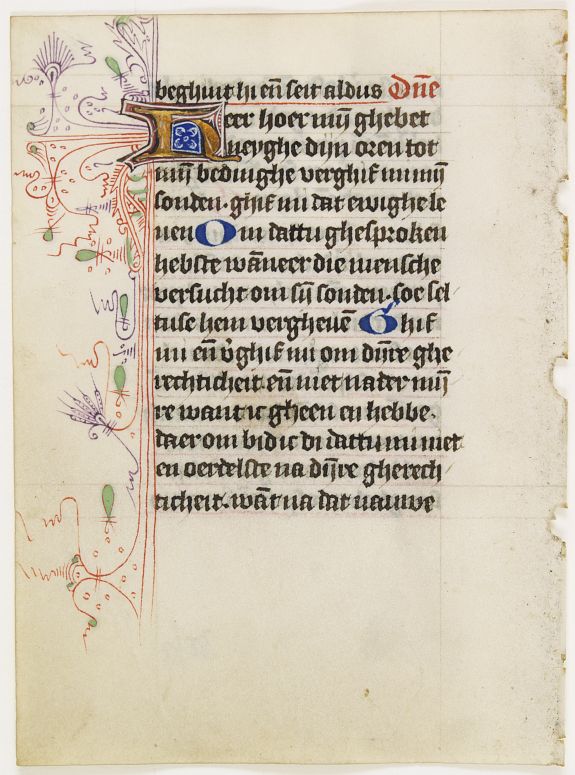 beghint hi eñ seit aldus Dñe
Heer hoer mijn ghebet
neyghe dijn oren tot
mijn bedinghe verghif mi mijn
sonden. ghif mi dat ewighe le
uen Om dattu ghesproken
hebste wãneer die mensche
versucht om sijn sonden. soe sel
tuse hem vergheuẽ Ghif
mi eñ v̉ghif mi om dijnre ghe
rechticheit. eñ niet nader mijn
re want ic gheen en hebbe.
daer om bid ic di dattu mi niet
en oerdelste na dijnre gherech
ticheit. wãt na dat nauwe